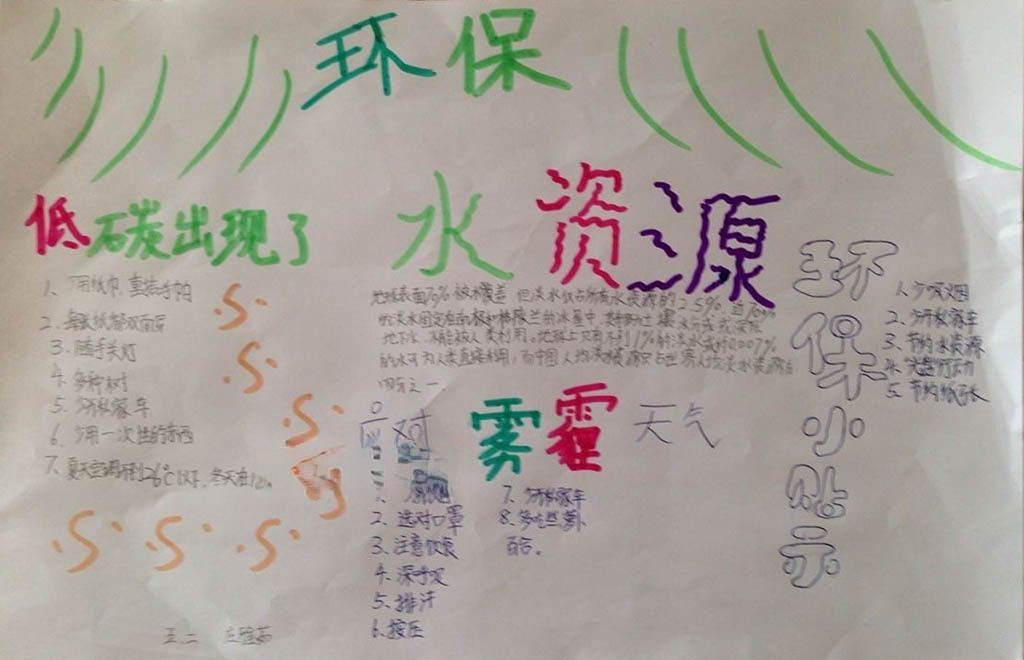 环保
低碳出现了
1、少用纸巾,重拾手帕
2、每张纸都双面写
3、随手关灯
4、多种树
5、少开私家车
6、少用一次性的东西
7、夏天空调不到26℃以下,冬天在
水资源
地球表面70%被水覆盖 但淡水仅占所有水资源的2.5% 近70%
的淡水固定在南极和格陵兰的冰层中,其余
地下水,不能被人类利用。地球上只有不到1%的淡水或约0.007%
的水可为人类直接利用,而中国人均淡水资源只占世界人均淡水资源的
四分之一
环保小贴示
1、少吸烟
2、少开私家车
3、节约水资源
4、光盘行动
5、节约纸张
应对雾霾天气
1、
2、选对口罩
3、注意饮食
4、深呼吸
5、排汗
6、按压
7、少开私家车
8、多吃些萝卜
百合。
五.二